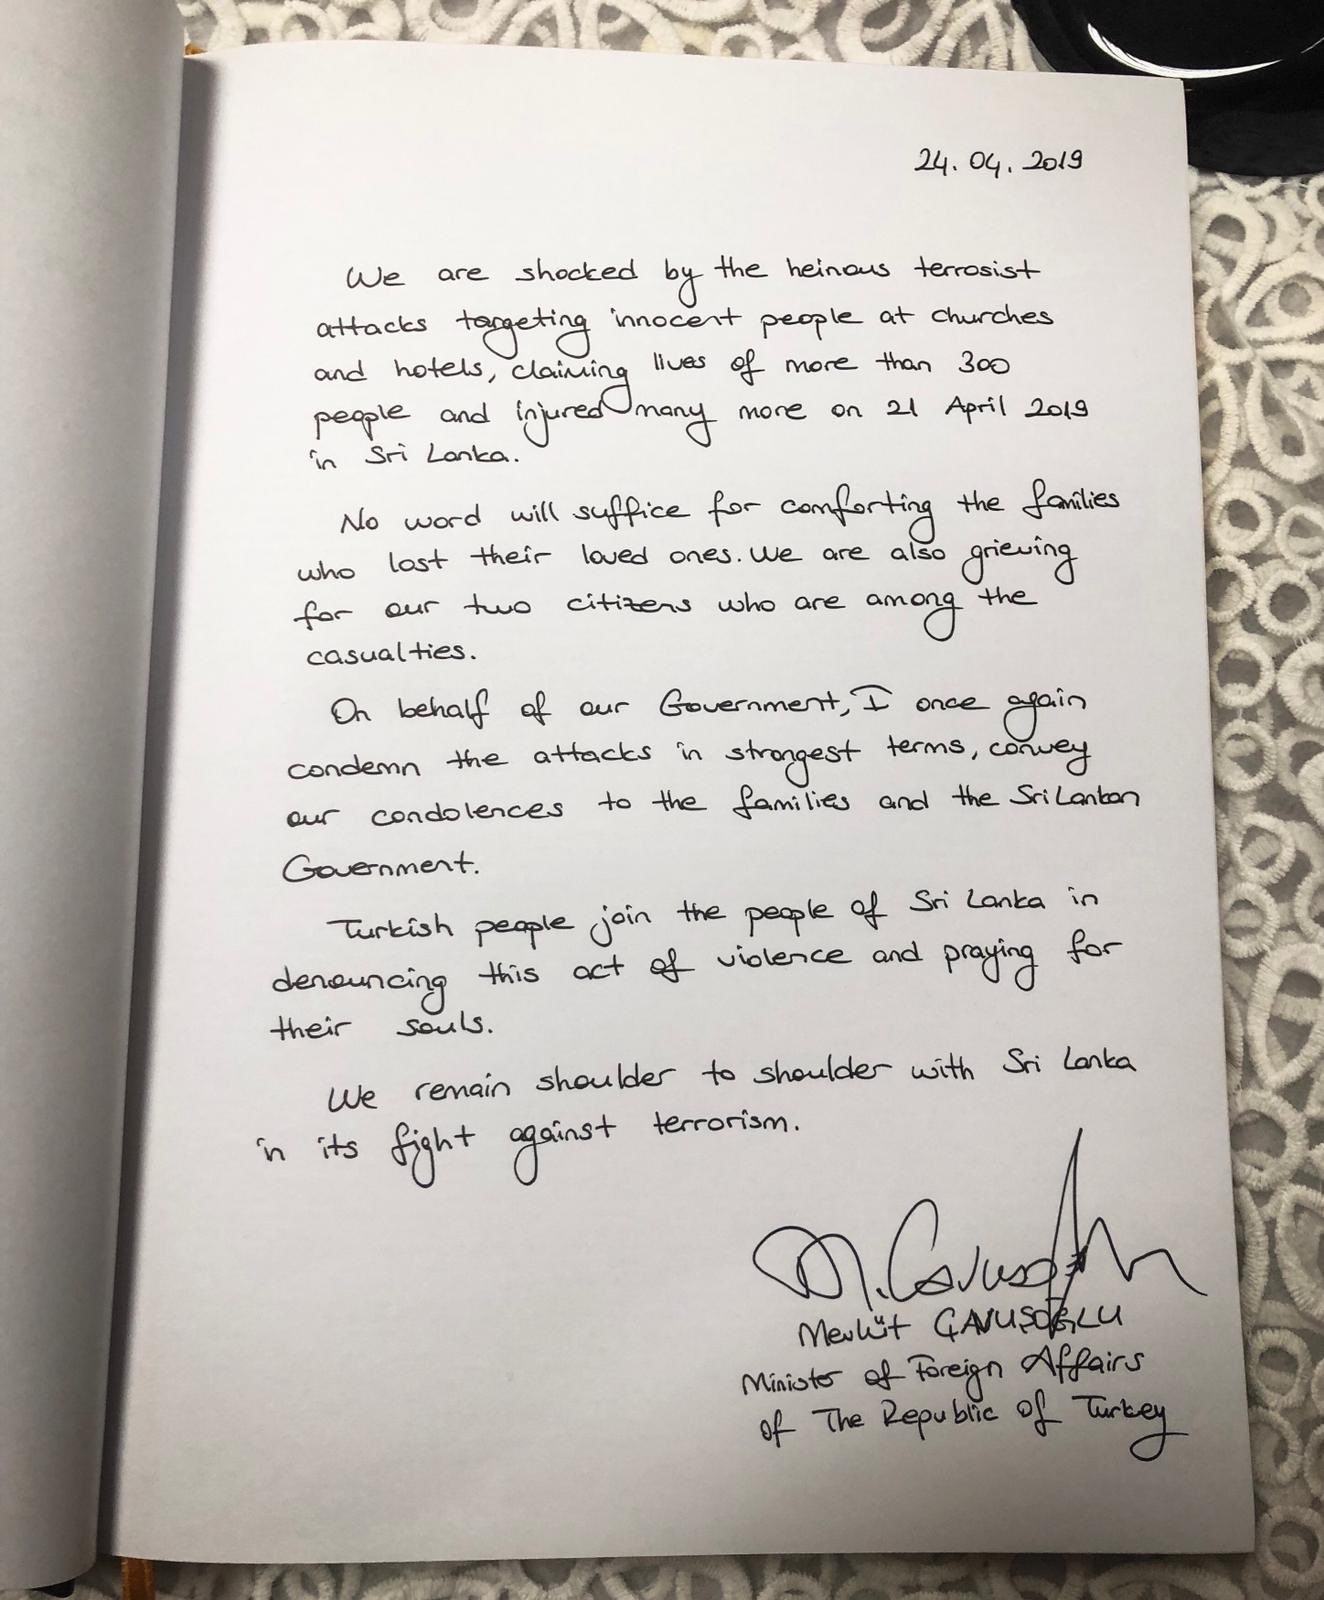 24.04.2019
We are shocked by the heinous terrosist
attacks targeting innocent people at churches
and hotels, claiming lives of more than 300
people and injured many more on 21 April 2019
in Sri Lanka.
No word will suffice for comforting the families
who lost their loved ones. We are also grieving
for our two citizens who are among the
casualties.
On behalf of our Government, I once again
condemn the attacks in strongest terms, convey
our condolences to the families and the Sri Lankan
Government.
Turkish people join the people of Sri Lanka in
denouncing this act of violence and praying for
their souls.
We remain shoulder to shoulder with Sri Lanka
in its fight against terrorism.
M. Cavusoglu
Mevlüt ÇAVUŞOĞLU
Minister of Foreign Affairs
of The Republic of Turkey